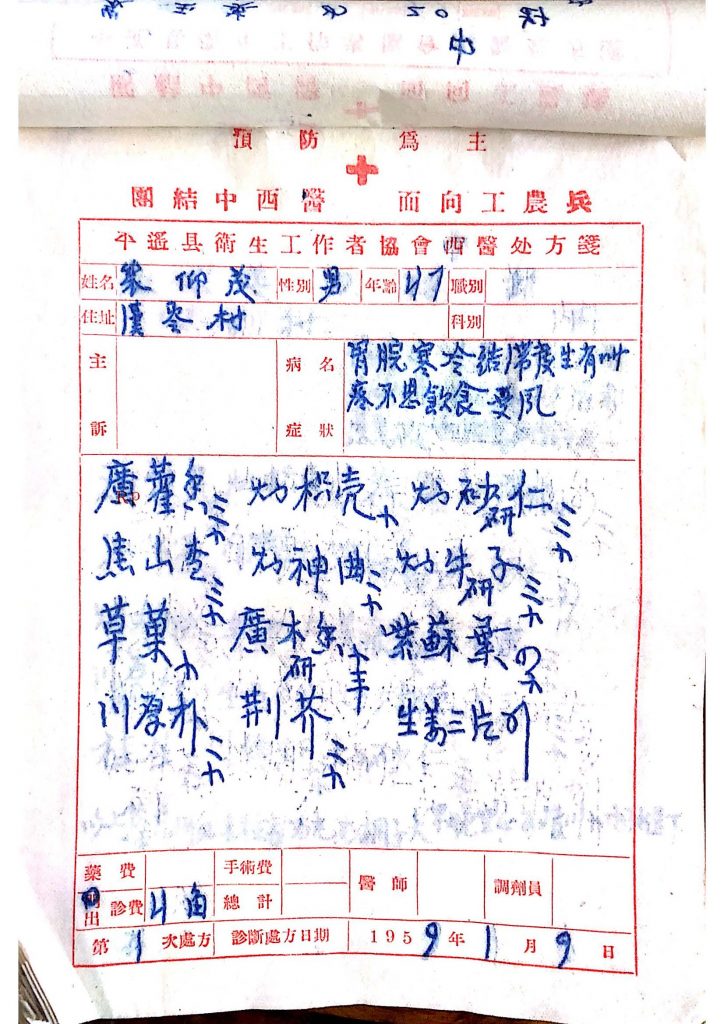 預防為主
團結中西醫 面向工農兵
平遙县衛生工作者協會西醫处方箋
姓名 仰茂 性別 男 年齡 47 職別
住址 村 科別
主訴 病名症狀 胃脘寒冷結滯 生有
疼不思飲食受風
廣藿香三个 炒枳壳个 炒砂仁研三个
焦山查三个 炒神曲三个 炒牛子研三个
草菓个 廣木香研个半 紫蘇葉
川厚朴三个 荆芥三个 生姜三片引
藥費 手術費 醫師 調劑員
出診費 角 總計
第1次處方 診断處方日期 1959年1月9日